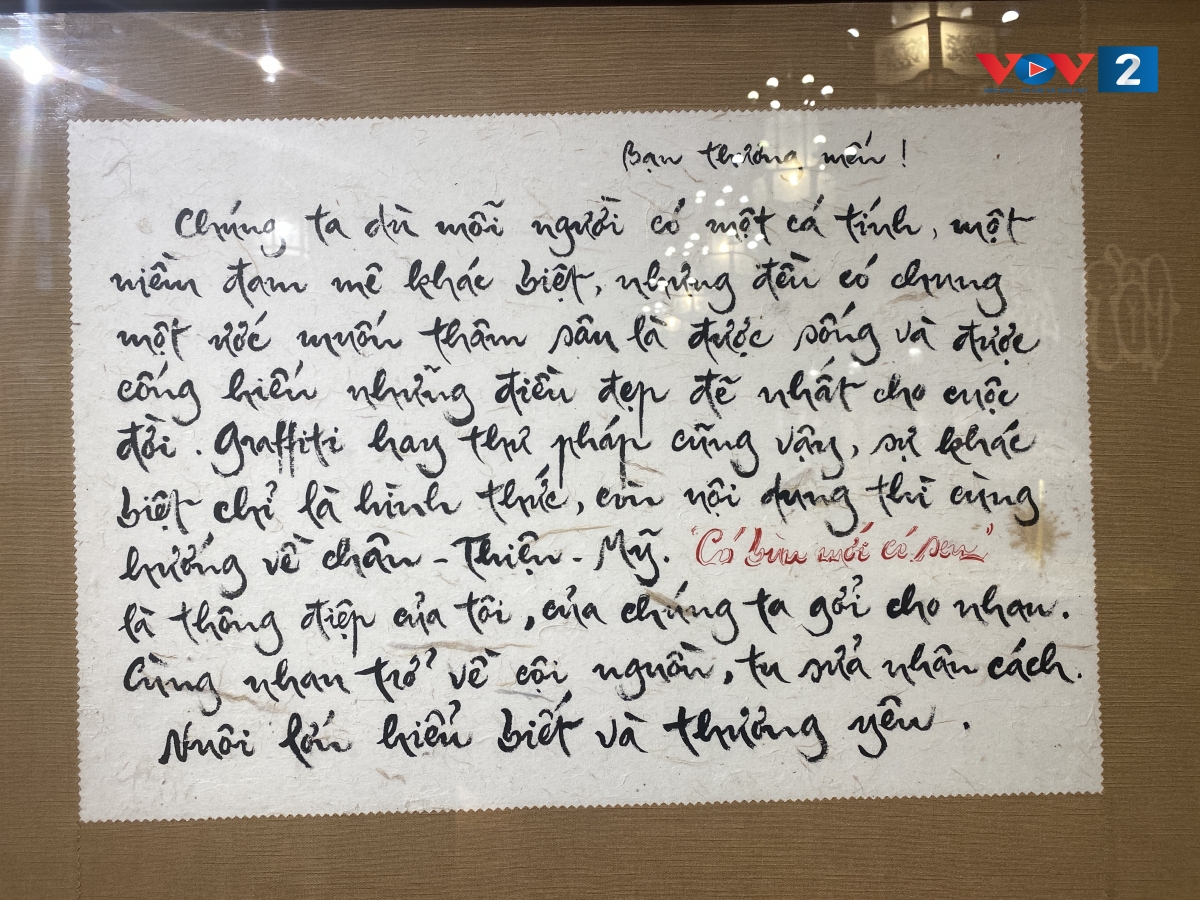 VOV 2
Bạn thương mến !
Chúng ta dù mỗi người có một cá tính, một
niềm đam mê khác biệt, nhưng đều có chung
một ước muốn thâm sâu là được sống và được
cống hiến những điều đẹp đẽ nhất cho cuộc
đời. Graffiti hay thư pháp cũng vậy, sự khác
biệt chỉ là hình thức, còn nội dung thì cùng
hướng về chân - Thiện - Mỹ. "Có bùn mới có sen"
là thông điệp của tôi, của chúng ta gởi cho nhau.
Cùng nhau trở về cội nguồn, tu sửa nhân cách.
Nuôi lớn hiểu biết và thương yêu.